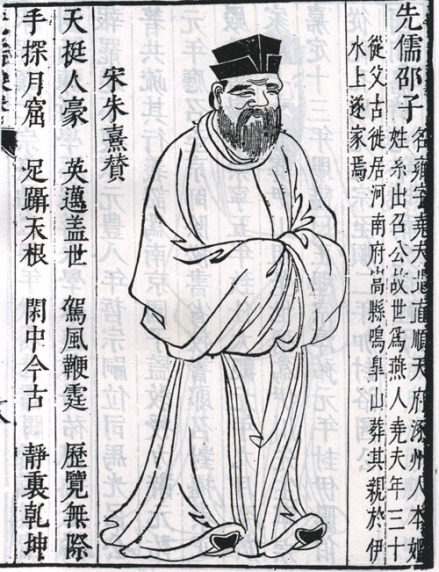 先儒邵子 名雍字堯夫直順天府涿州人本姬
姓系出召公故世爲燕人堯夫年三十
從父古徙居河南府嵩縣鳴皐山葬其親於伊
水上遂家焉
宋朱熹贊
天挺人豪 英邁盖世 駕風鞭霆 歷覽無際
手探月窟 足躡天根 閑中今古 靜裏乾坤